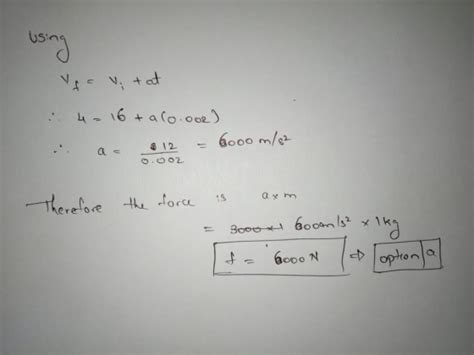 Using
V_f = V_i + at
∴ 4 = 16 + a(0.002)
∴ a = 12/0.002 = 6000 m/s²
Therefore the force is a × m
= 3000 × 1 6000m/s² × 1kg
f = 6000 N ⇒ option a